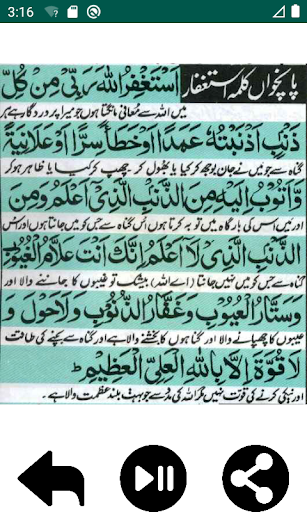 3:16
پانچواں کلمہ استغفار اَسْتَغْفِرُ اللهَ رَبِّیْ مِنْ كُلِّ
میں اللہ سے مُعافی مانگتا ہوں جو میرا پروردگار ہے ہر
ذَنْۢبٍ اَذْنَبْتُهٗ عَمَدًا اَوْ خَطَأً سِرًّا اَوْ عَلَانِيَةً
گناہ سے جو میں نے جان بوجھ کر کیا یا بھول کر چھپ کر کیا یا ظاہر ہو کر
وَّاَتُوْبُ اِلَيْهِ مِنَ الذَّنْۢبِ الَّذِیْ اَعْلَمُ وَمِنَ
اور میں اس کی بارگاہ میں توبہ کرتا ہوں اس گناہ سے جس کو میں جانتا ہوں اور اس
الذَّنْۢبِ الَّذِیْ لَا اَعْلَمُ اِنَّكَ اَنْتَ عَلَّامُ الْغُيُوْبِ
گناہ سے جس کو میں نہیں جانتا (اے اللہ) بیشک تو غیبوں کا جاننے والا اور
وَسَتَّارُ الْعُيُوْبِ وَغَفَّارُ الذُّنُوْبِ وَلَا حَوْلَ وَ
عیبوں کا چھپانے والا اور گناہوں کا بخشنے والا ہے اور گناہ سے بچنے کی طاقت
لَا قُوَّةَ اِلَّا بِاللهِ الْعَلِیِّ الْعَظِيْمِ ط
اور نیکی کرنے کی قوت نہیں مگر اللہ کی مدد سے جو بہت بلند عظمت والا ہے۔